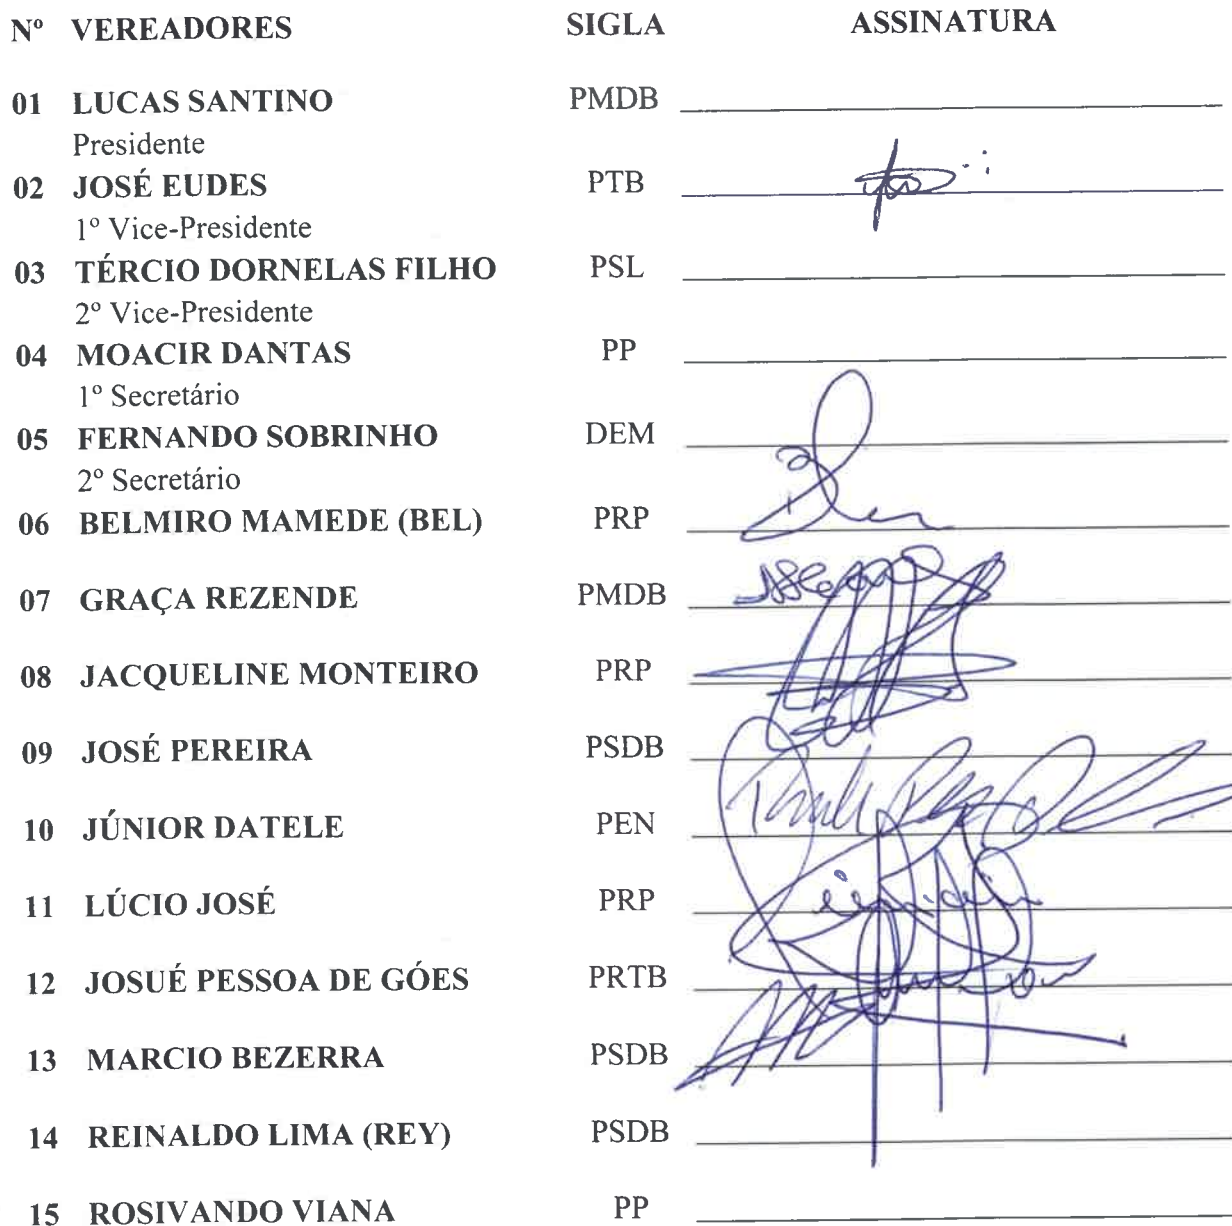 Nº VEREADORES SIGLA ASSINATURA
01 LUCAS SANTINO PMDB
Presidente
02 JOSÉ EUDES PTB
1º Vice-Presidente
03 TÉRCIO DORNELAS FILHO PSL
2º Vice-Presidente
04 MOACIR DANTAS PP
1º Secretário
05 FERNANDO SOBRINHO DEM
2º Secretário
06 BELMIRO MAMEDE (BEL) PRP
07 GRAÇA REZENDE PMDB
08 JACQUELINE MONTEIRO PRP
09 JOSÉ PEREIRA PSDB
10 JÚNIOR DATELE PEN
11 LÚCIO JOSÉ PRP
12 JOSUÉ PESSOA DE GÓES PRTB
13 MARCIO BEZERRA PSDB
14 REINALDO LIMA (REY) PSDB
15 ROSIVANDO VIANA PP